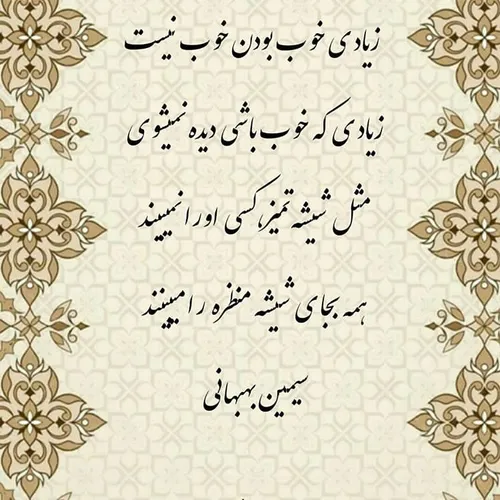 زیادی خوب بودن خوب نیست
زیادی که خوب باشی دیده نمیشوی
مثل شیشه تمیز، کسی او را نمیبیند
همه بجای شیشه منظره را میبینند
سیمین بهبهانی